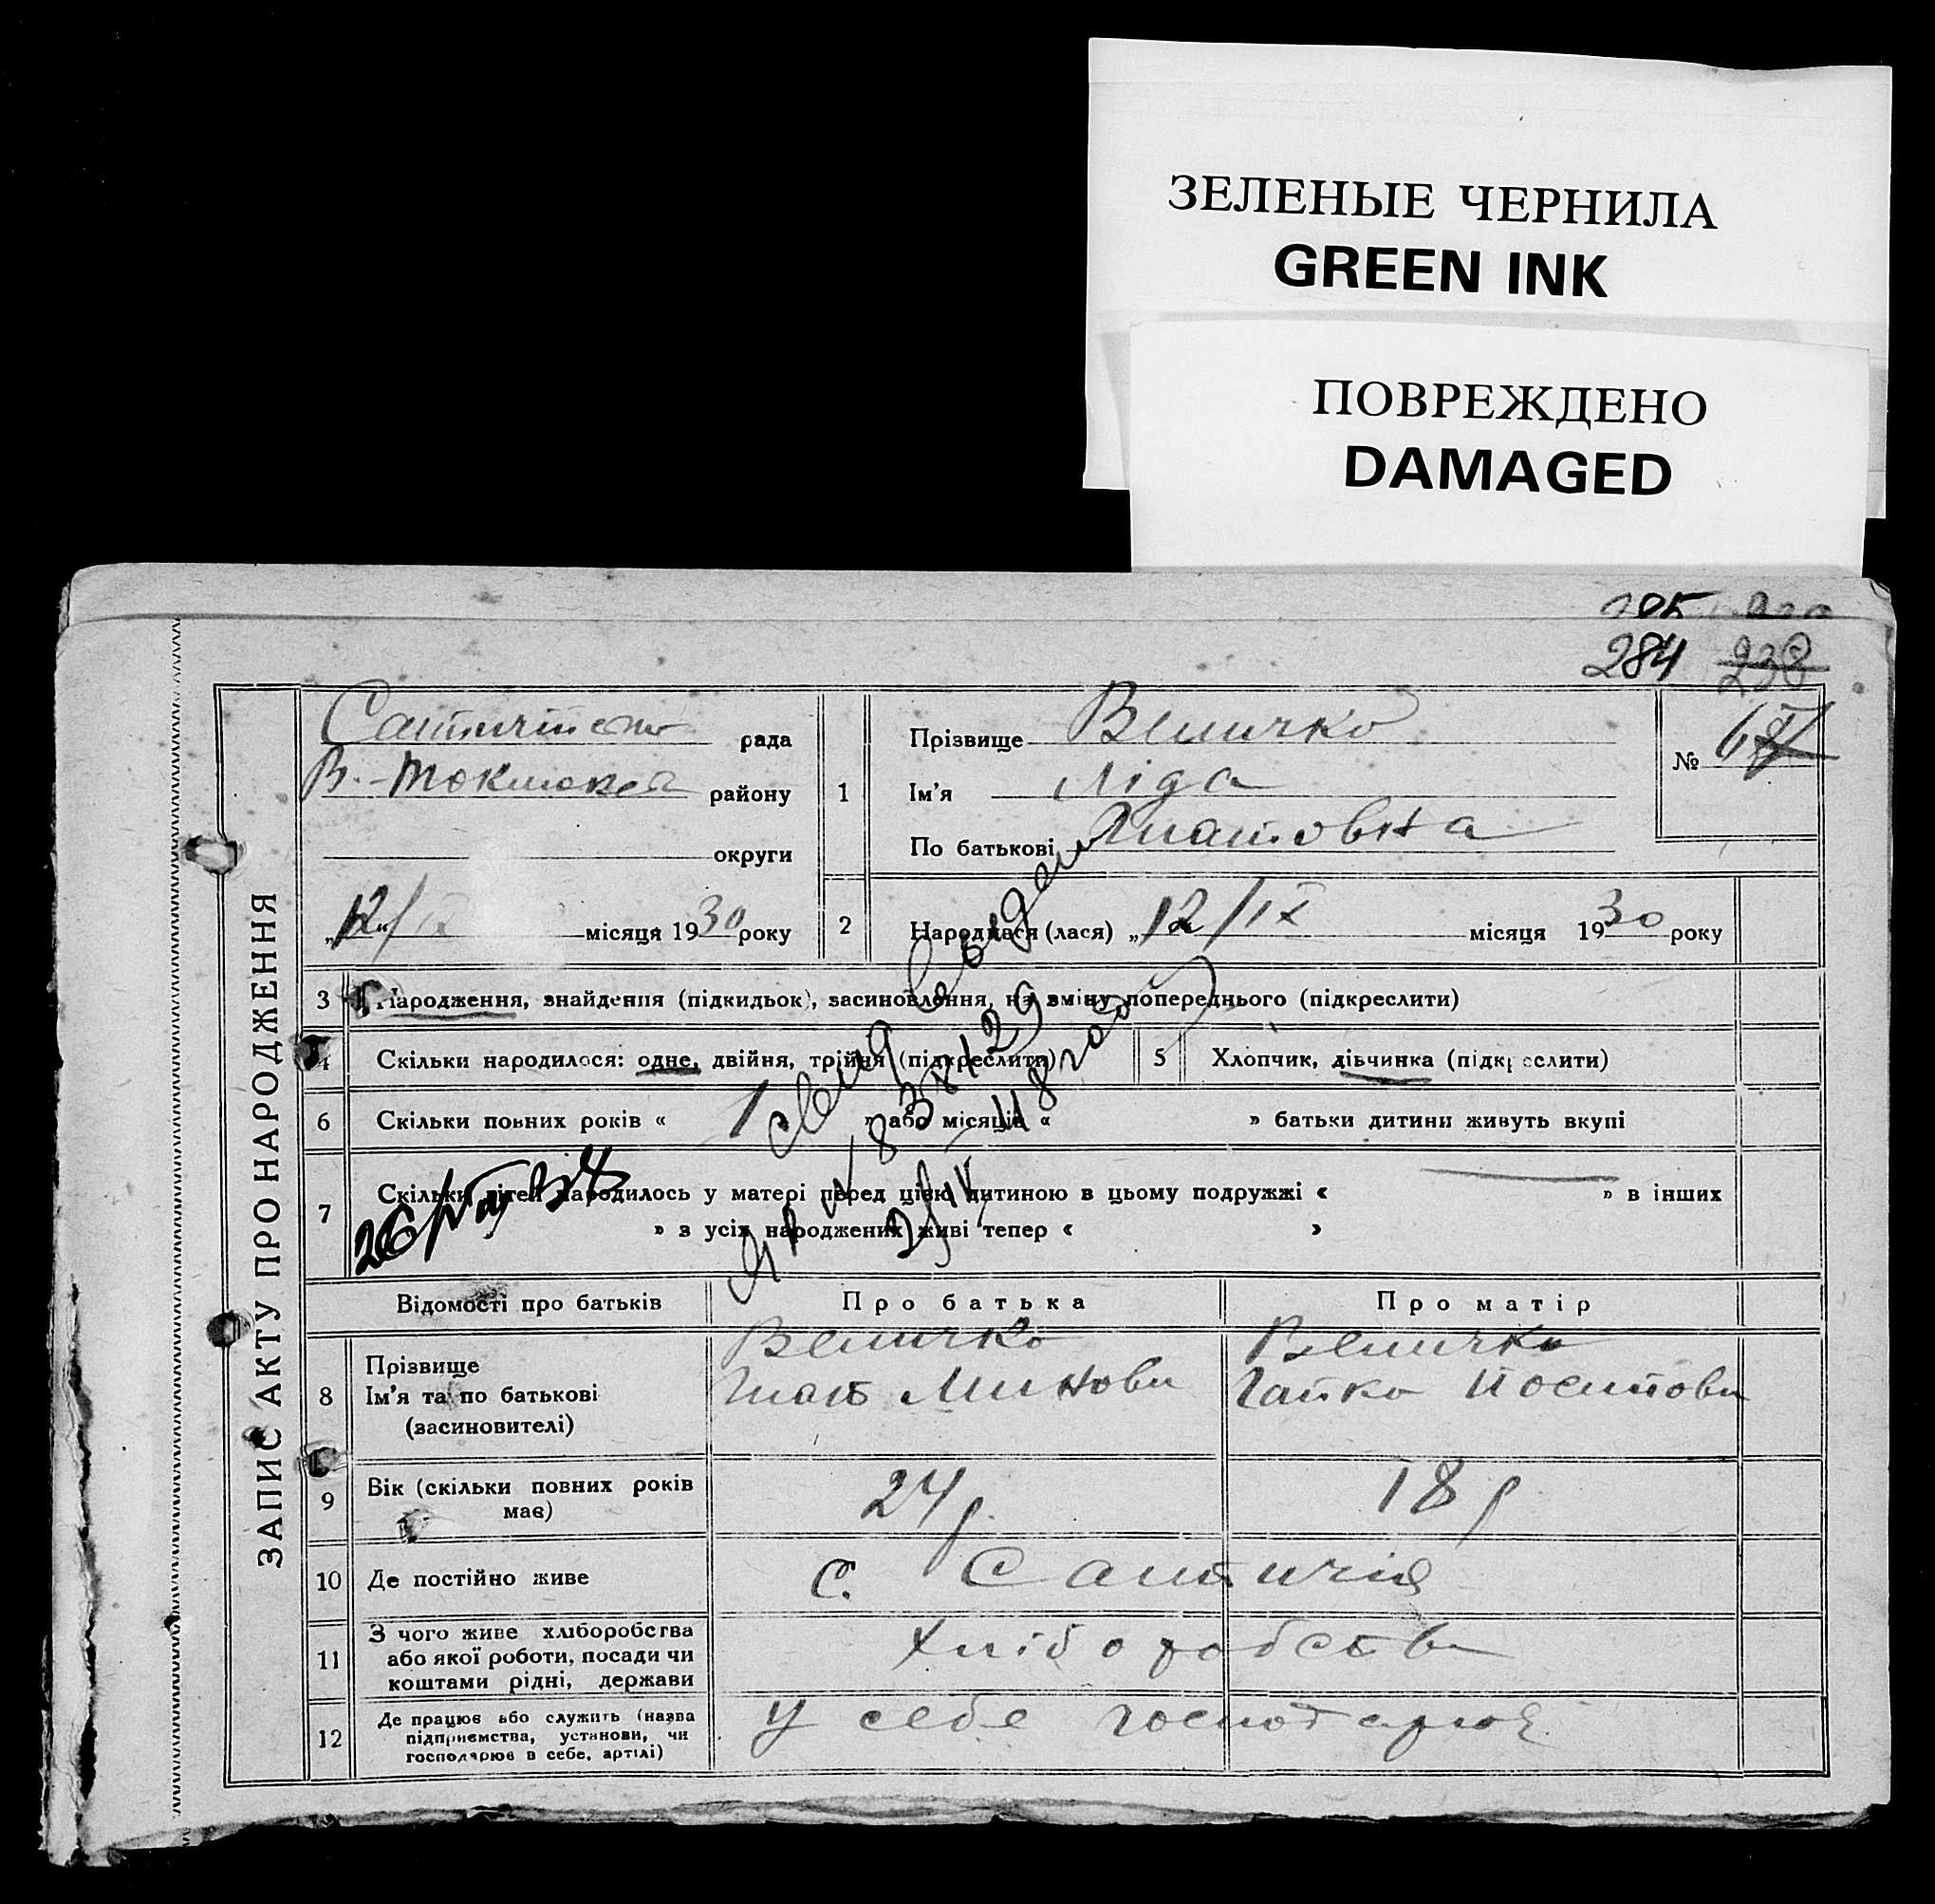 ЗЕЛЕНЫЕ ЧЕРНИЛА
GREEN INK
ПОВРЕЖДЕНО
DAMAGED
284 238
ЗАПИС АКТУ ПРО НАРОДЖЕННЯ
рада
В.-Токмак района району
округи
12/IX місяця 1930 року
1
Прізвище Величко
Ім'я Ліда
По батькові Гнатовна
№ 67
2
Народився (лася) „12/IX місяця 1930 року
3 Народження, знайдення (підкидьок), засиновлення, на зміну попереднього (підкреслити)
4 Скільки народилося: одне, двійня, трійня (підкреслити)
5 Хлопчик, дівчинка (підкреслити)
6 Скільки повних років « 1 » або місяців « » батьки дитини живуть вкупі
7 Скільки дітей народилось у матері перед цією дитиною в цьому подружжі « — » в інших
» з усіх народжених живі тепер « »
Відомості про батьків Про батька Про матір
8 Прізвище
Ім'я та по батькові
(засиновителі)
Величко
Гнат Минови
Величко
Гапка Йосипови
9 Вік (скільки повних років
має)
24 р.
18 р
10 Де постійно живе
с.
11 З чого живе хліборобства
або якої роботи, посади чи
коштами рідні, держави
Хліборобств
12 Де працює або служить (назва
підприємства, установи, чи
господарює в себе, артілі)
У себе господарює